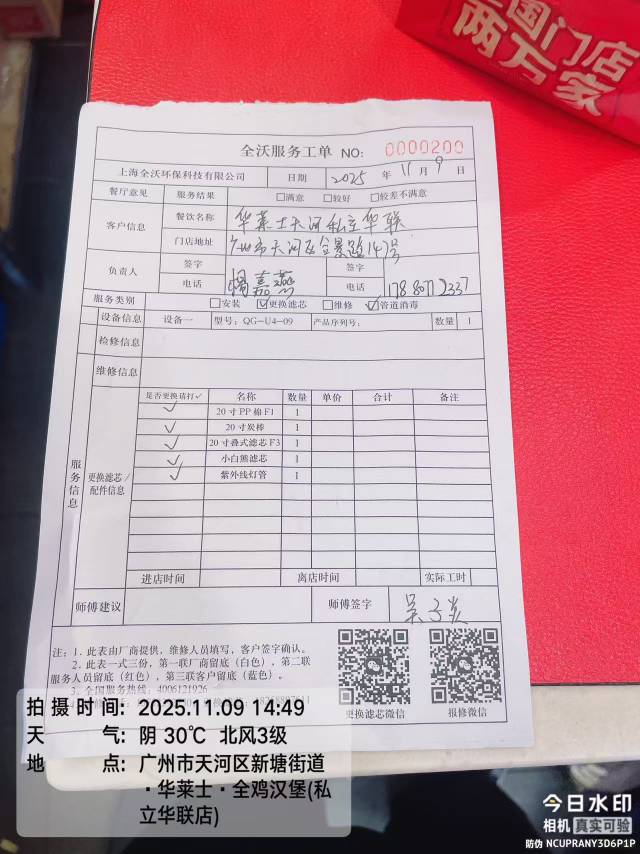 国门店
两万家
全沃服务工单 NO: 0000200
上海全沃环保科技有限公司 日期 2025 年 11 月 9 日
餐厅意见 服务结果 □满意 □较好 □较差不满意
客户信息 餐饮名称 华莱士天河私立华联
门店地址 广州市天河区全景路147号
负责人 签字 杨嘉燕 签字
电话 电话 17880712337
服务类别 □安装 ☑更换滤芯 □维修 ☑管道消毒
设备信息 设备一 型号: QG-U4-09 产品序列号: 数量 1
检修信息
维修信息
服务信息 更换滤芯/配件信息 是否更换请打✓ 名称 数量 单价 合计 备注
✓ 20寸PP棉F1 1
✓ 20寸炭棒 1
✓ 20寸叠式滤芯F3 1
✓ 小白熊滤芯 1
✓ 紫外线灯管 1
进店时间 离店时间 实际工时
师傅建议 师傅签字 吴子炎
注: 1. 此表由厂商提供, 维修人员填写, 客户签字确认。
2. 此表一式三份, 第一联厂商留底(白色), 第二联
服务人员留底(红色), 第三联客户留底(蓝色)。
3. 全国服务热线: 4006121926
更换滤芯微信 报修微信
拍摄时间: 2025.11.09 14:49
天气: 阴 30℃ 北风3级
地点: 广州市天河区新塘街道
·华莱士·全鸡汉堡(私
立华联店)
今日水印
相机 真实可验
防伪 NCUPRANY3D6P1P